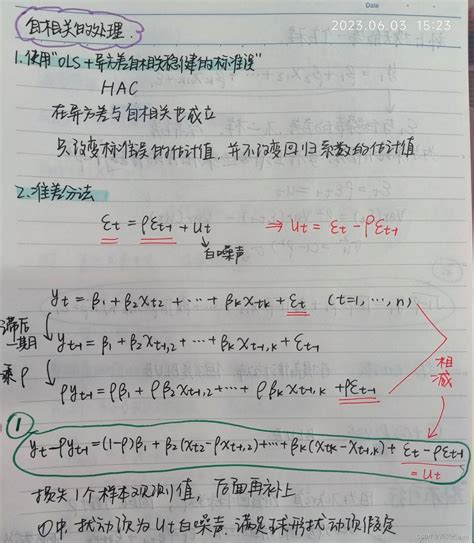 Date
2023.06.03 15:23
自相关的处理.
1.使用"OLS+异方差自相关稳健的标准误"
HAC
在异方差与自相关也成立
只改变标准误的估计值,并不改变回归系数的估计值
2.准差分法
εt = ρεt-1 + ut ⇒ ut = εt - ρεt-1
白噪声
yt = β1 + β2xt2 + ··· + βkxtk + εt (t=1, ···, n)
滞后一期 yt-1 = β1 + β2xt-1,2 + ··· + βkxt-1,k + εt-1
乘ρ ρyt-1 = ρβ1 + ρβ2xt-1,2 + ··· + ρβkxt-1,k + ρεt-1
相减
① yt-ρyt-1 = (1-ρ)β1 + β2(xt2-ρxt-1,2) + ··· + βk(xtk-xt-1,k) + εt-ρεt-1
= ut
损失1个样本观测值,后面再补上
①中,扰动项为ut白噪声,满足球形扰动项假定